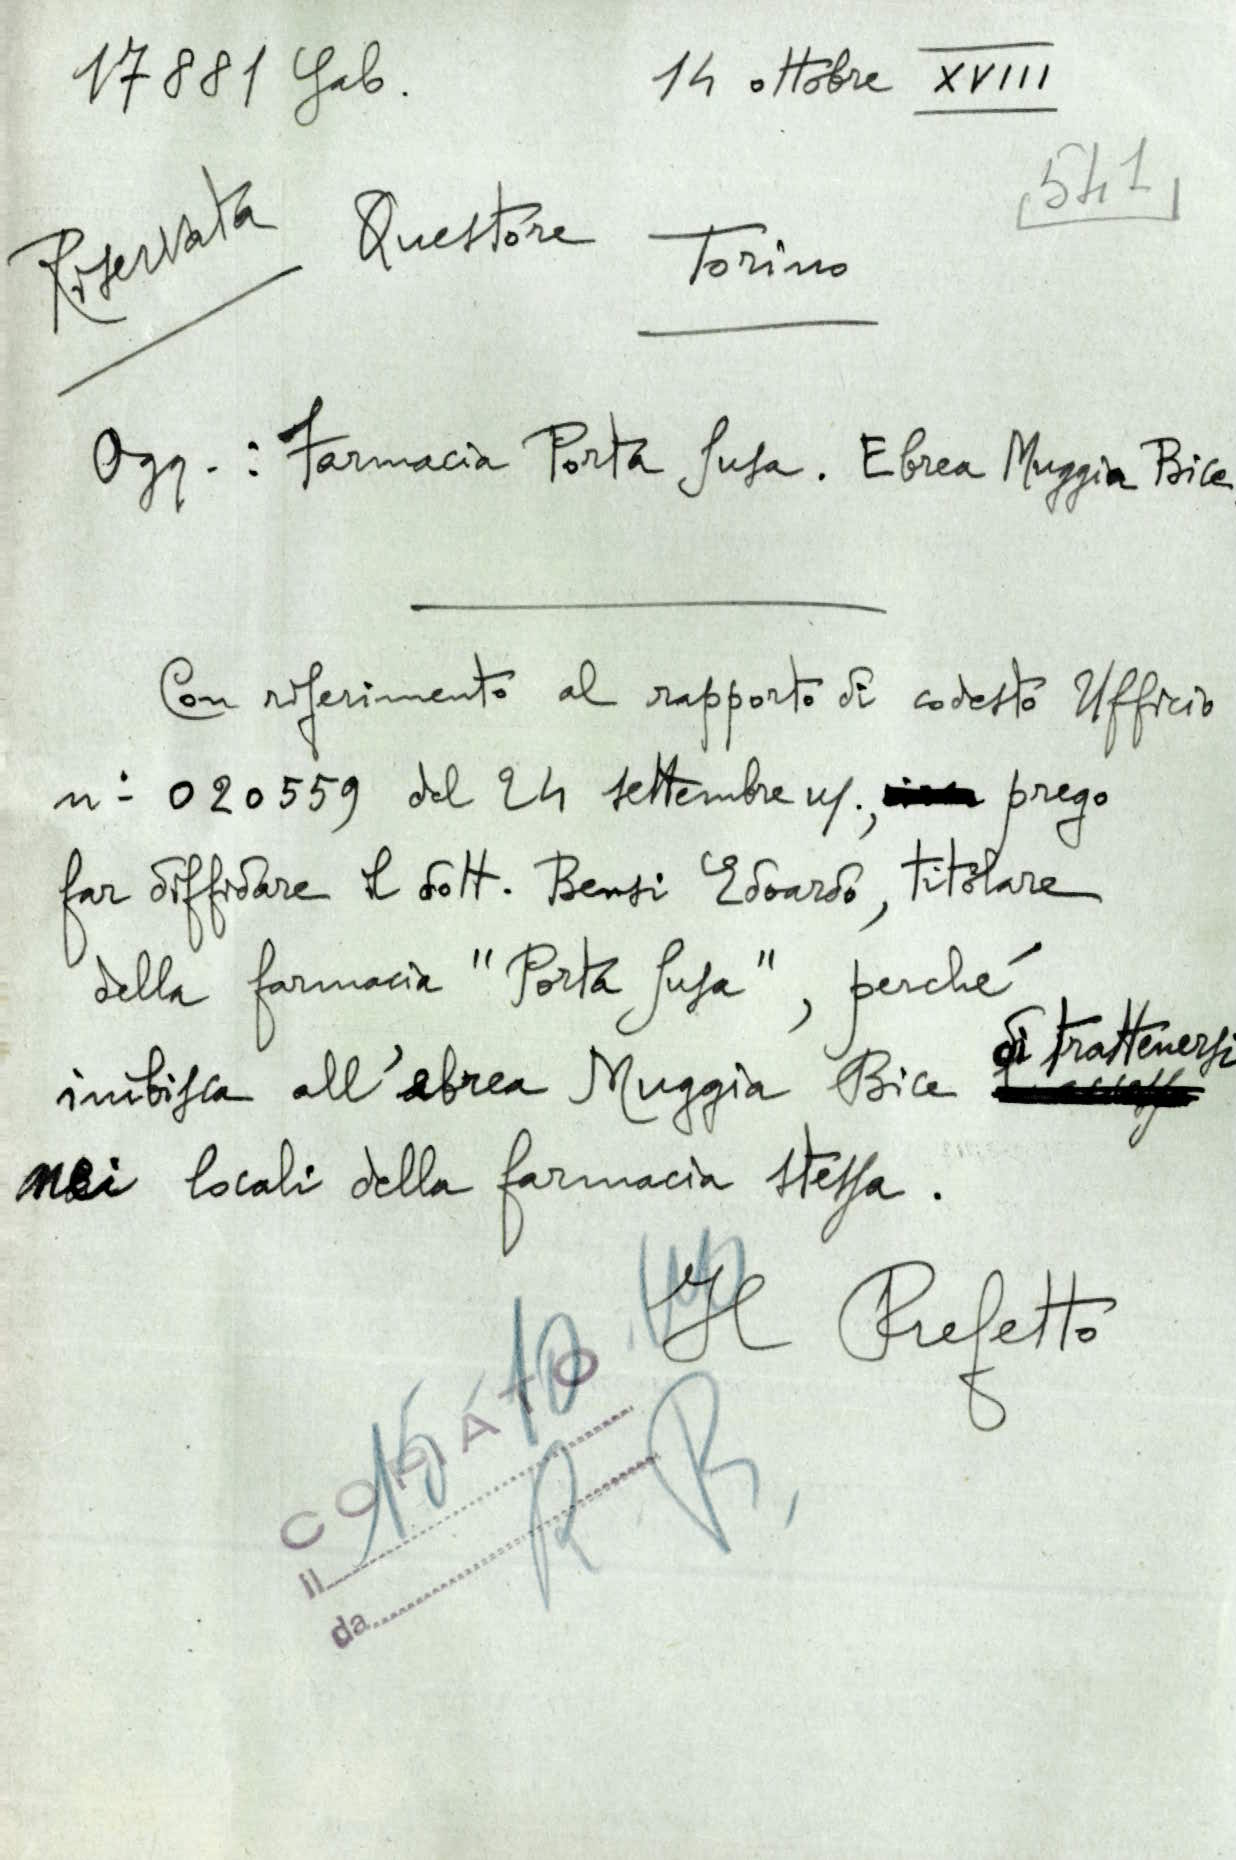 17881 Gab. 14 ottobre XVIII
541
Riservata Questore Torino
Ogg. : Farmacia Porta Susa. Ebrea Muggia Bice.
Con riferimento al rapporto di codesto Ufficio
n. 020559 del 24 settembre u/., prego
far diffidare il dott. Bensi Edoardo, titolare
della farmacia "Porta Susa", perché
di trattenersi
inibisca all'ebrea Muggia Bice
nei locali della farmacia stessa.
Il Prefetto
COPIATO
il 15 10
da R R.